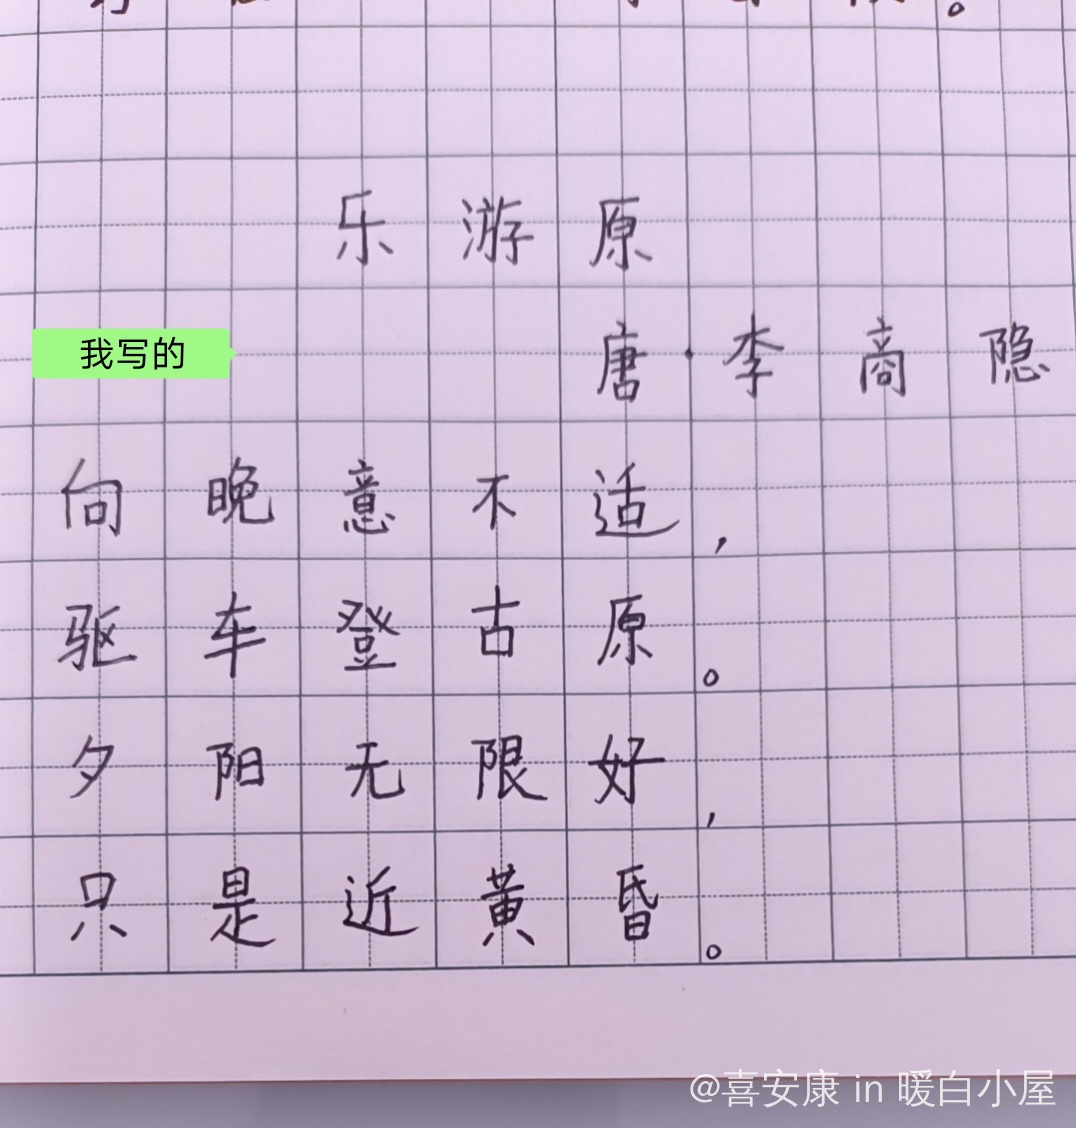 乐游原
我写的
唐·李商隐
向晚意不适，
驱车登古原。
夕阳无限好，
只是近黄昏。
@喜安康 in 暖白小屋